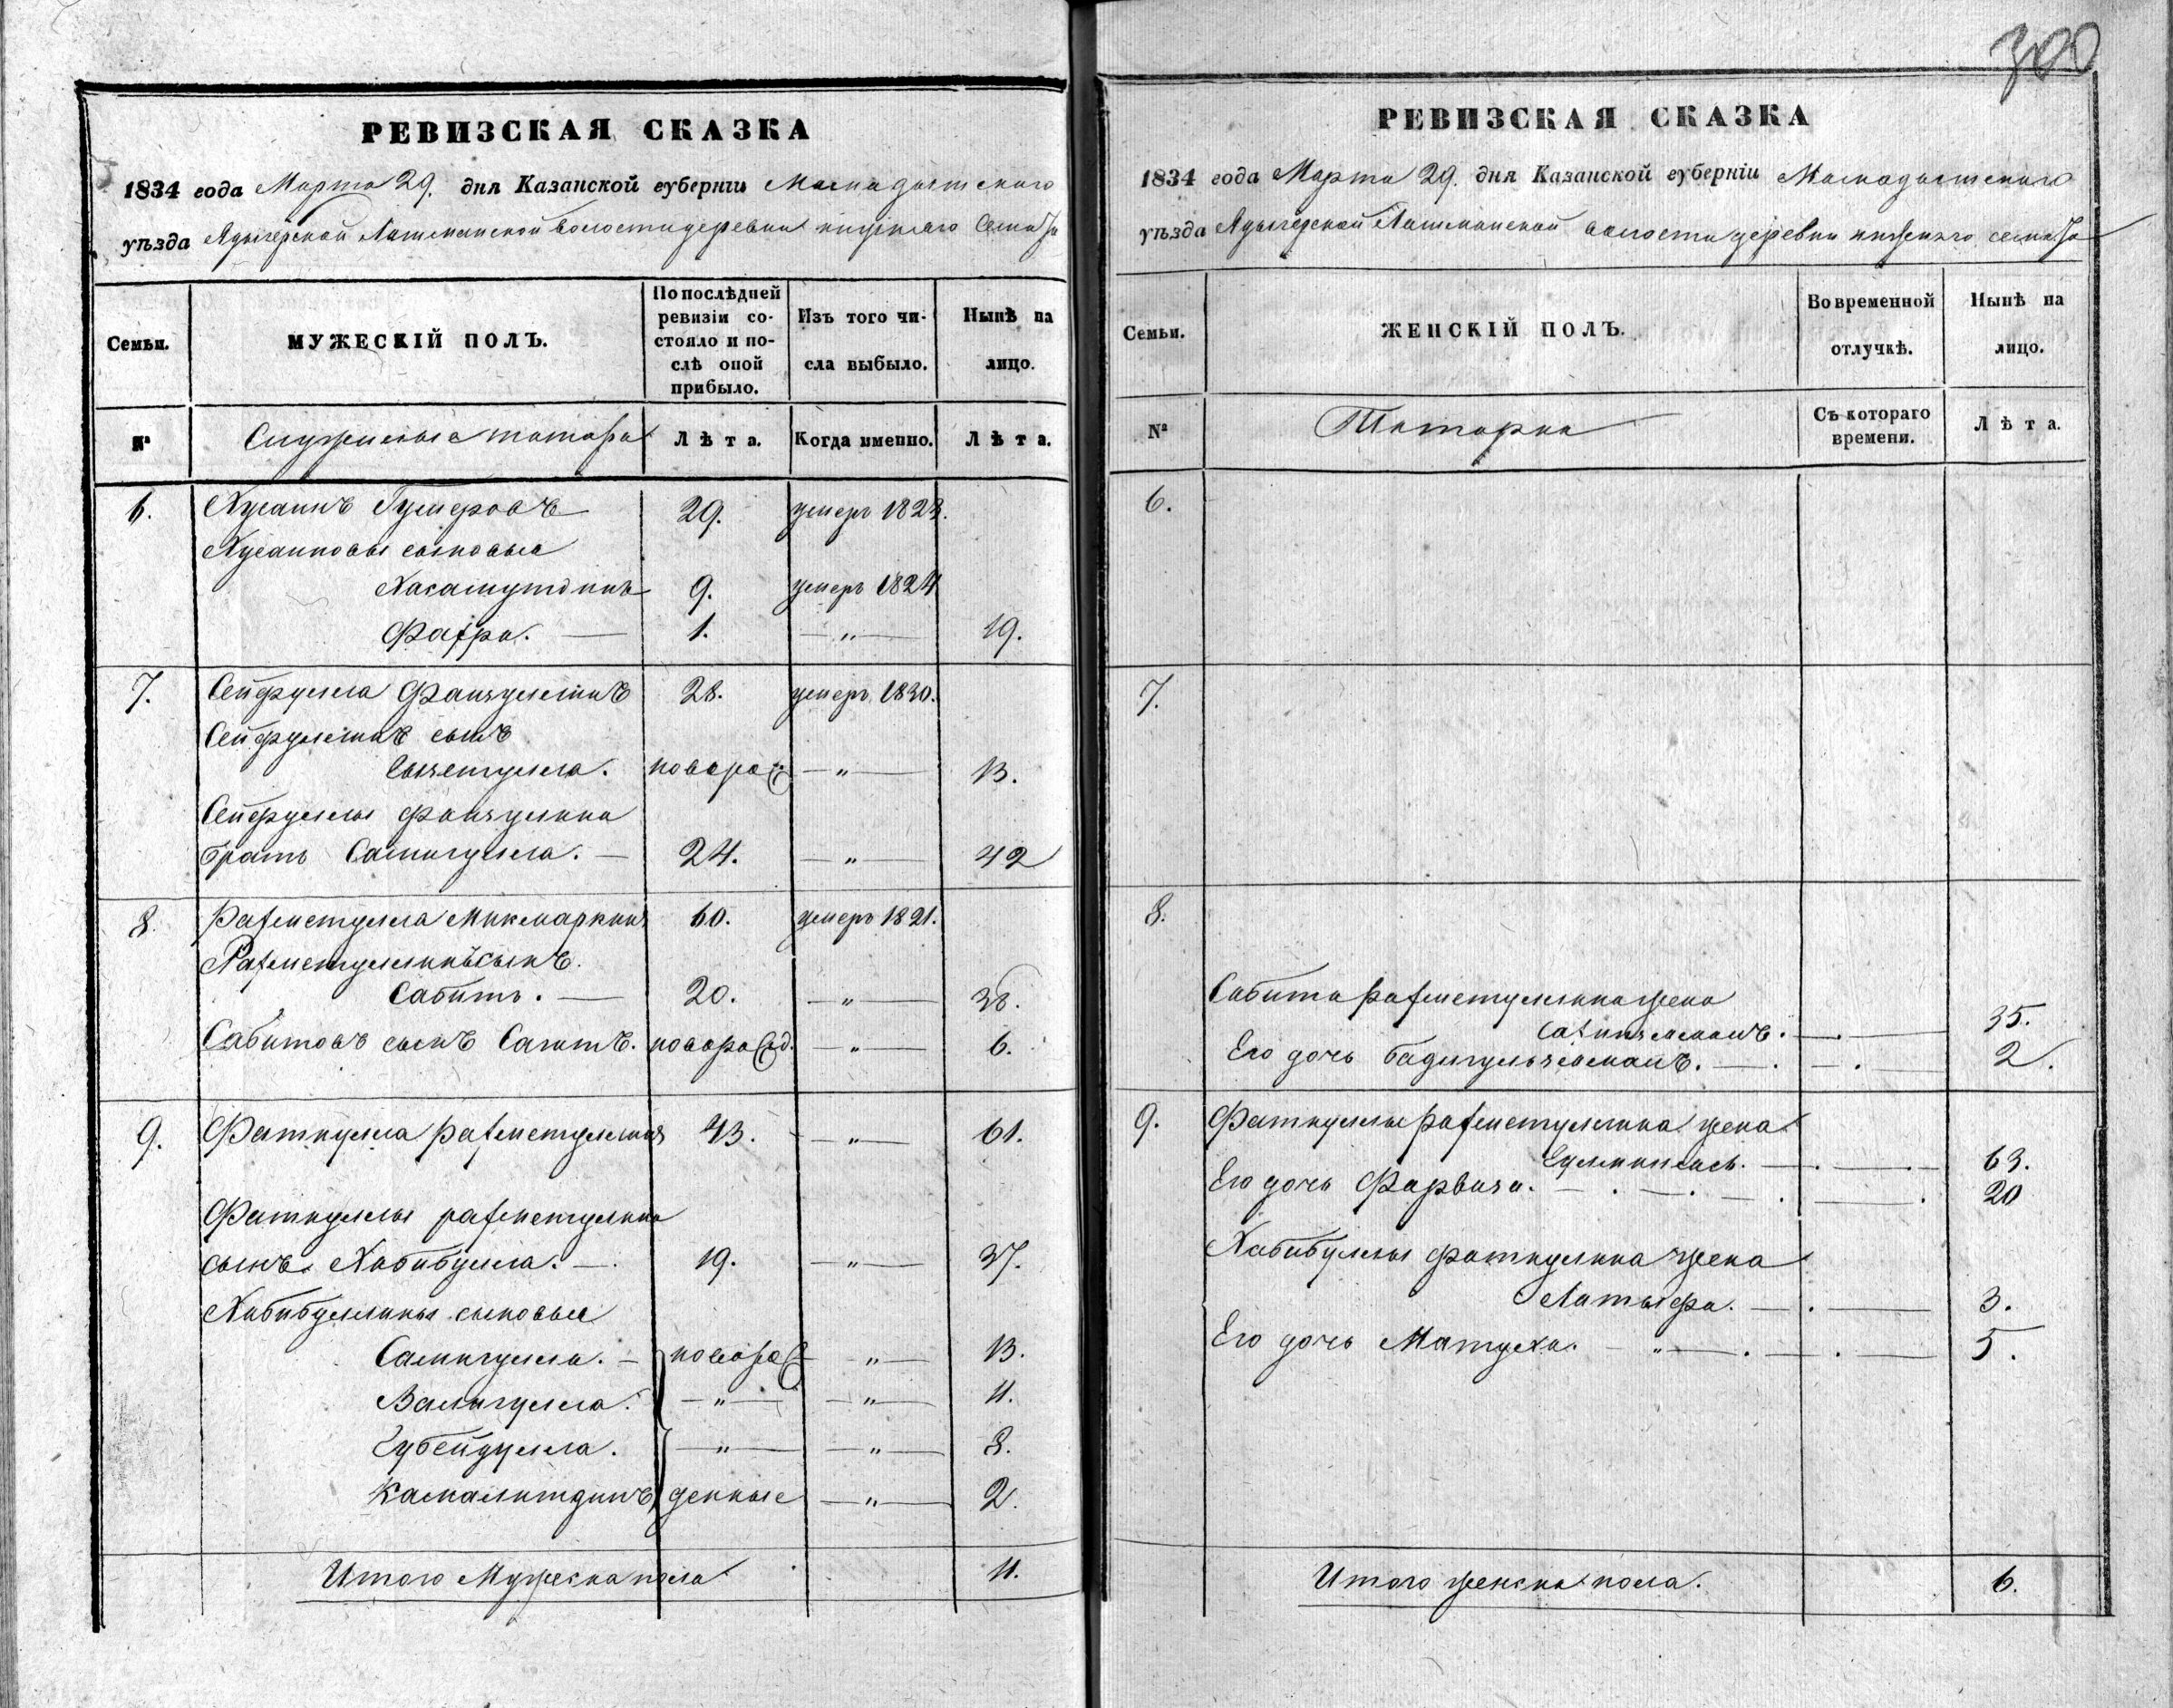 300
РЕВИЗСКАЯ СКАЗКА
1834 года Марта 29. дня Казанской губернiи Мамадышскаго
уѣзда Адаевской Лашманской волости деревни нижняго
Семьи.
МУЖЕСКIЙ ПОЛЪ.
По послѣдней ревизiи состояло и послѣ оной прибыло.
Изъ того числа выбыло.
Нынѣ на лицо.
№
Служилые татара
Лѣта.
Когда именно.
Лѣта.
6. Хусаинъ Гумеровъ 29. умеръ 1823.
Хусаиновы сыновья
Хасамутдинъ 9. умеръ 1824
Фахра. — 1. — „ — 19.
7. Сейфулла Файзуллинъ 28. умеръ 1830.
Сейфуллинъ сынъ
новорож — „ — 13.
Сейфуллы Файзуллина
братъ Самигулла. — 24. — „ — 42
8. Рахметулла 60. умеръ 1821.
Рахметуллинъ сынъ
Сабитъ. — 20. — „ — 38.
Сабитовъ сынъ Сагитъ. новорожд. — „ — 6.
9. Фаткулла Рахметуллинъ 43. — „ — 61.
Фаткуллы рахметуллина
сынъ Хабибулла. — 19. — „ — 37.
Хабибуллины сыновья
Самигулла. — новорож — „ — 13.
Валигулла. — „ — — „ — 11.
Губейдулла. — „ — — „ — 8.
Камалитдинъ денные — „ — 2.
Итого Мужеска пола 11.
РЕВИЗСКАЯ СКАЗКА
1834 года Марта 29. дня Казанской губернiи Мамадышскаго
уѣзда Адаевской Лашманской волости деревни нижняго
Семьи.
ЖЕНСКIЙ ПОЛЪ.
Во временной отлучкѣ.
Нынѣ на лицо.
№
Татарки
Съ котораго времени.
Лѣта.
6.
7.
8.
Сабита рахметуллина жена
35.
Его дочь Бадигульзямалъ. — . — . — 2.
9. Фаткуллы рахметуллина жена
63.
Его дочь Фарвиза. — . — . — 20
Хабибуллы фаткуллина жена
Латыфа. — . — 3.
Его дочь — „ — . — . — 5.
Итого женска пола. 6.